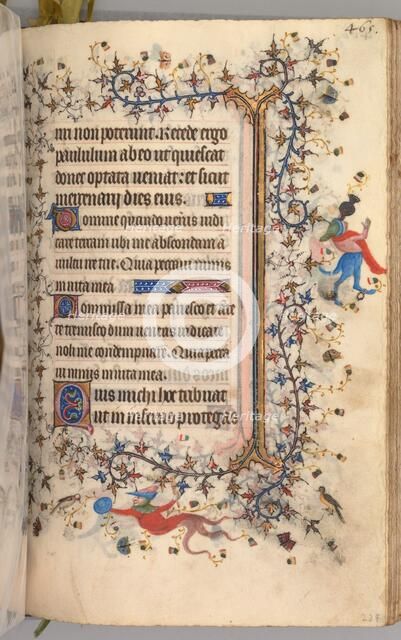 465.
nii non poterint. Recede ergo
paululum ab eo ut quiescat
donec optata veniat: et sicut
mercenarii dies eius.
Domine quando veneris iudi
care terram ubi me abscondam a
vultu ire tue. Quia peccavi nimis
in vita mea.
Commissa mea pavesco et ante
te erubesco dum veneris iudicare
noli me condempnare. Quia pecca
vi nimis in vita mea.
Quis michi hoc tribuat
ut in inferno protegas
Heritage
Heritage